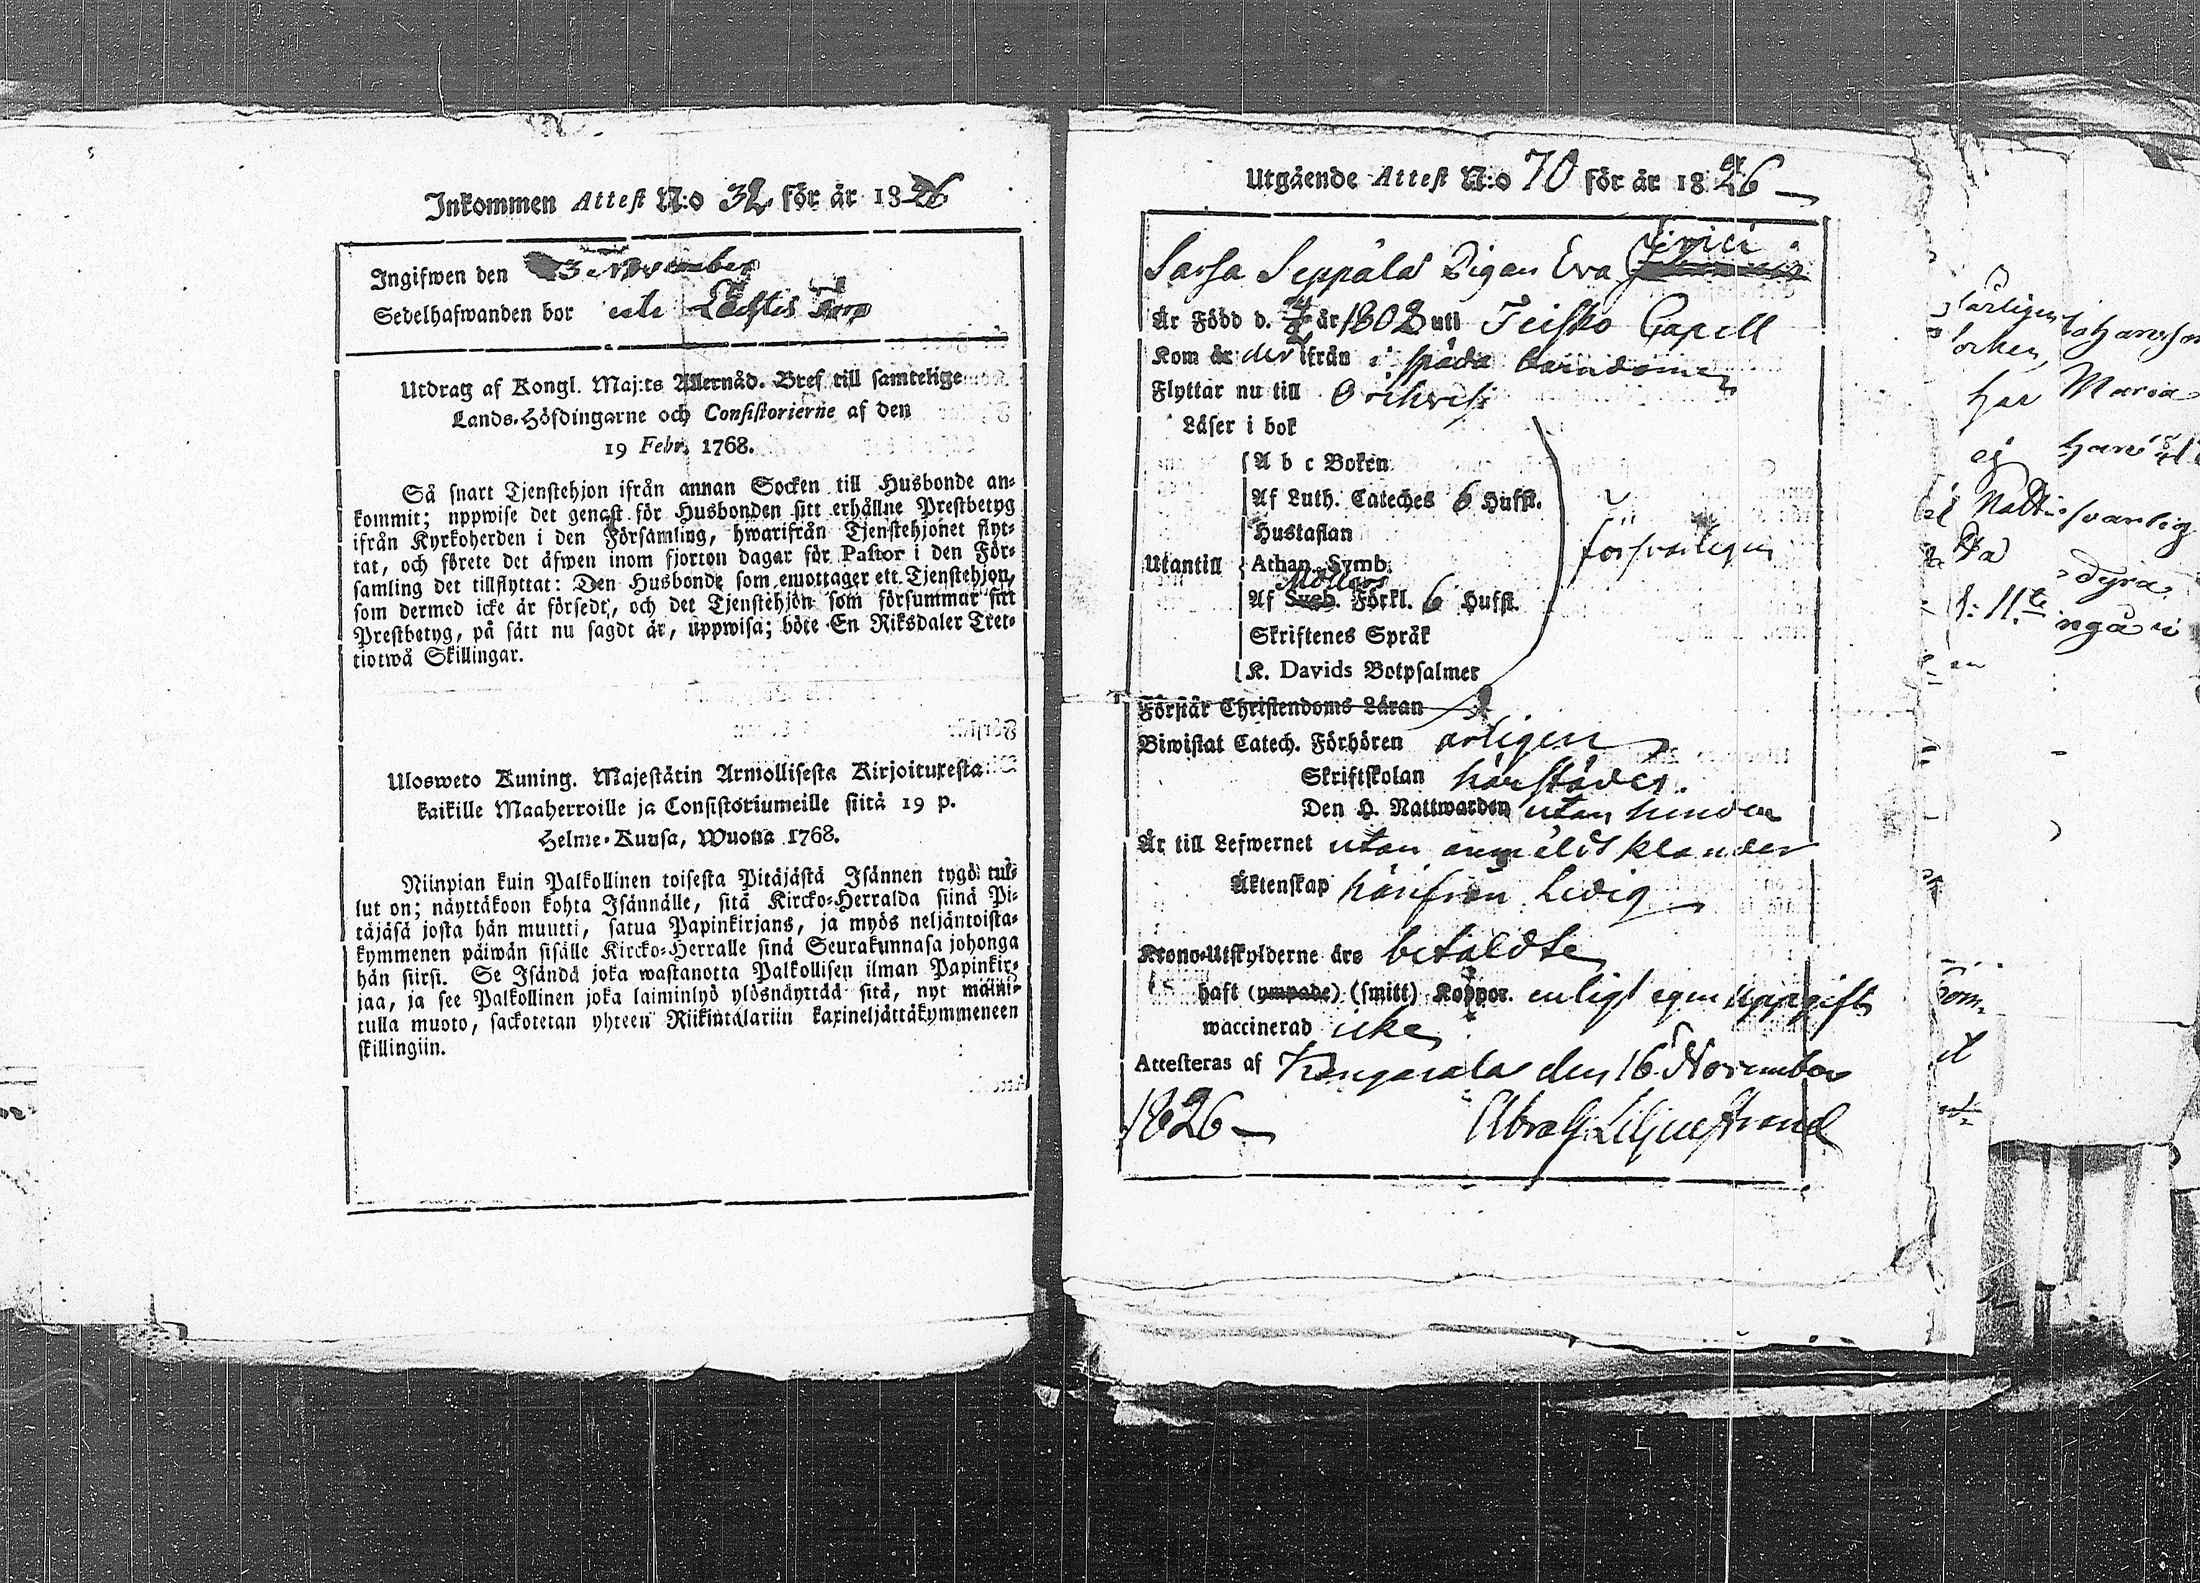 Inkommen Attest N:o 32 för år 1826
Ingifwen den 3 November
Sedelhafwanden bor
Utdrag af Kongl. Maj:ts Allernåd. Bref till samtelige
Lands-Höfdingarne och Consistorierne af den
19 Febr. 1768.
Så snart Tjenstehjon ifrån annan Socken till Husbonde an-
kommit; uppwise det genast för Husbonden sitt erhållne Prestbetyg
ifrån Kyrkoherden i den Församling, hwarifrån Tjenstehjonet flyt-
tat, och förete det äfwen inom fjorton dagar för Pastor i den För-
samling det tillflyttat: Den Husbonde som emottager ett Tjenstehjon,
som dermed icke är försedt, och det Tjenstehjon som försummar sitt
Prestbetyg, på sätt nu sagdt är, uppwisa; böte En Riksdaler Tret-
tiotwå Skillingar.
Ulosweto Kuning. Majestätin Armollisesta Kirjoituxesta
kaikille Maaherroille ja Consistoriumeille siitä 19 p.
Helme-Kuusa, Wuona 1768.
Niinpian kuin Palkollinen toisesta Pitäjästä Isännen tygö tul-
lut on; näyttäkoon kohta Isännälle, sitä Kircko-Herralda siinä Pi-
täjäsä josta hän muutti, satua Papinkirjans, ja myös neljäntoista-
kymmenen päiwän sisälle Kircko-Herralle sinä Seurakunnasa johonga
hän siirsi. Se Isändä joka wastanotta Palkollisen ilman Papinkir-
jaa, ja see Palkollinen joka laiminlyö ylösnäyttää sitä, nyt maini-
tulla muoto, sackotetan yhteen Riikintalariin kaxineljättäkymmeneen
skillingiin.
Utgående Attest N:o 70 för år 1826
Sarsa Seppälä Pigan Eva
Är Född d. år 1802 uti Teisko Capell
Kom år der ifrån i späda barndomen
Flyttar nu till Orihvesi
Läser i bok
A b c Boken
Af Luth. Cateches 6 Hufst.
Hustaflan
Utantill Athan. Symb.
Möllers
Af Sveb. Förkl. 6 Hufst.
försvarligen
Skriftenes Språk
K. Davids Botpsalmer
Förstår Christendoms Läran
Biwistat Catech. Förhören årligen
Skriftskolan härstädes.
Den H. Nattwarden utan hinder
Är till Lefwernet utan anmäldt klander
Äktenskap härifrån Ledig
Krono-Utskylderne äro betaldte
haft (ympade) (smitt) Koppor. enligt egen uppgift
waccinerad icke
Attesteras af Kangasala den 16 November
1826 Abra G: Liljestrand
årligen
socken
har Maria
ej